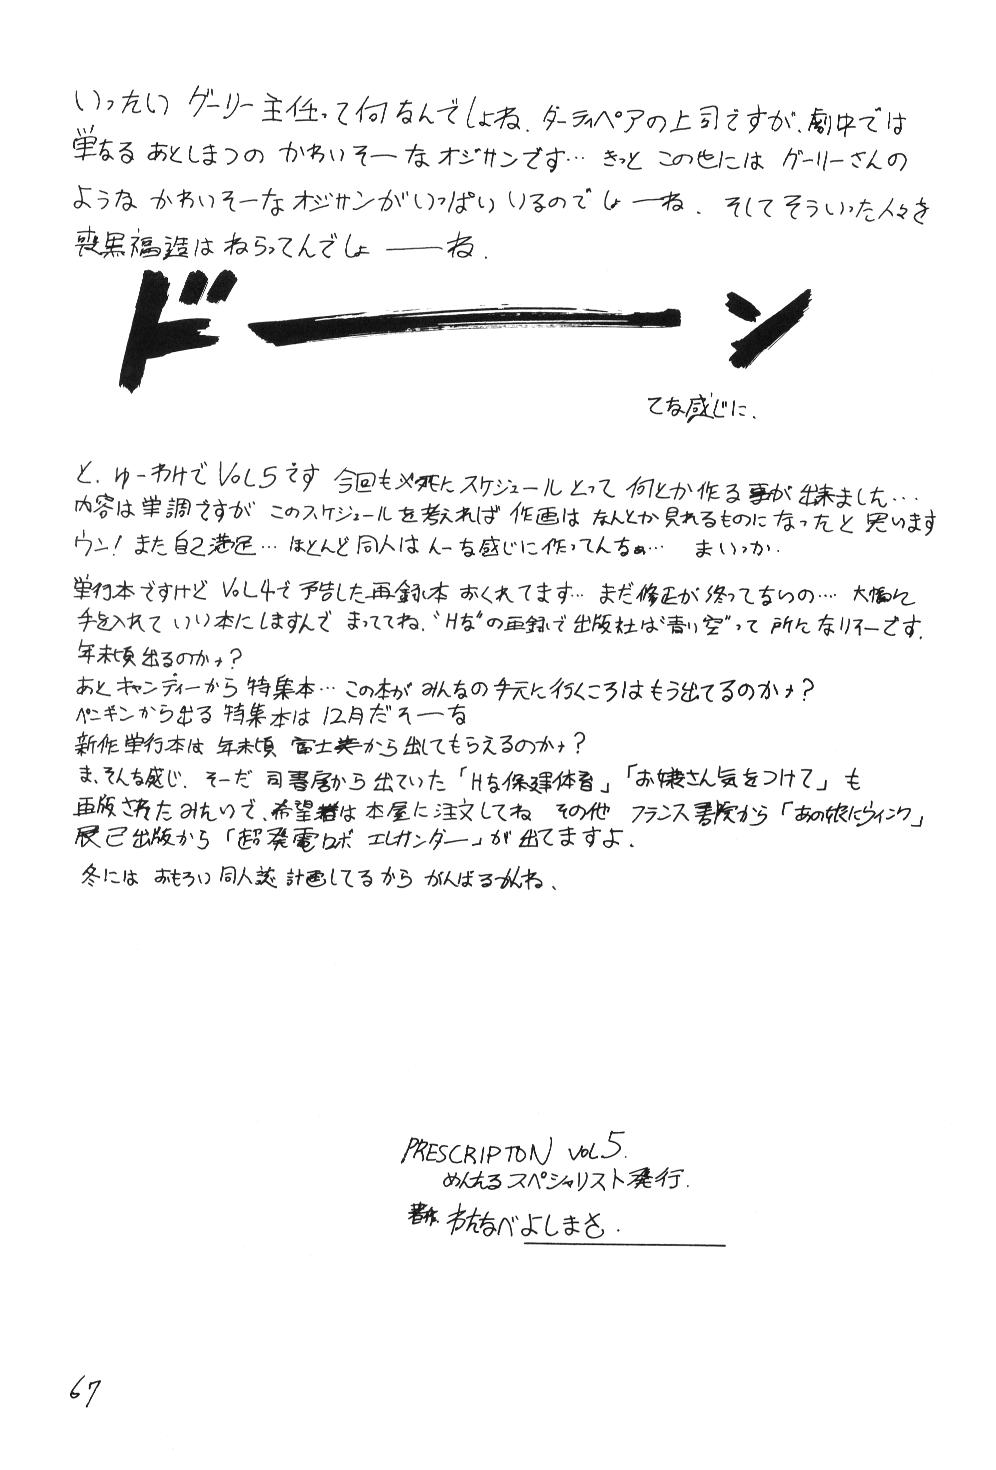 いったい ゲーリー主任って何なんでしょね、ダーティペアの上司ですが、劇中では
単なる あとしまつの かわいそーなオジサンです… きっと この世には ゲーリーさんの
ような かわいそーなオジサンがいっぱい いるのでしょーね. そしてそういった人々を
喪黒福造は ねらってんでしょ――ね.
ドーン
てな感じに.
と. ゆーわけで VOL5です 今回も必死にスケジュールとって 何とか作る事が出来ました…
内容は単調ですが このスケジュールを考えれば 作画は なんとか見れるものになったと思います
ウン! また自己満足… ほとんど同人はんーな感じに作ってんなぁ… まいっか.
単行本ですけど VOL4で予告した再録本 おくれてます… まだ修正が終ってないの… 大幅に
手を入れて いい本にしますんで まっててね. "Hな"の再録で出版社は"青い空"って 所になりそーです.
年末頃出るのかナ?
あと キャンディーから 特集本… この本が みんなの手元に行くころはもう出てるのかナ?
ペンギンから出る 特集本は 12月だそーな
新作単行本は 年末頃 富士美から出してもらえるのかナ?
ま、そんな感じ. そーだ 司書房から出ていた「Hな保健体育」「お嬢さん気をつけて」も
再版されたみたいで、希望者は本屋に注文してね その他 フランス書院から「あの娘にウィンク」
辰己出版から「超発電ロボ エレガンダー」が出てますよ.
冬には おもろい同人誌 計画してるから がんばるかんね、
PRESCRIPTON VOL5.
めんたるスペシャリスト発行.
著作. わたなべよしまさ.
67